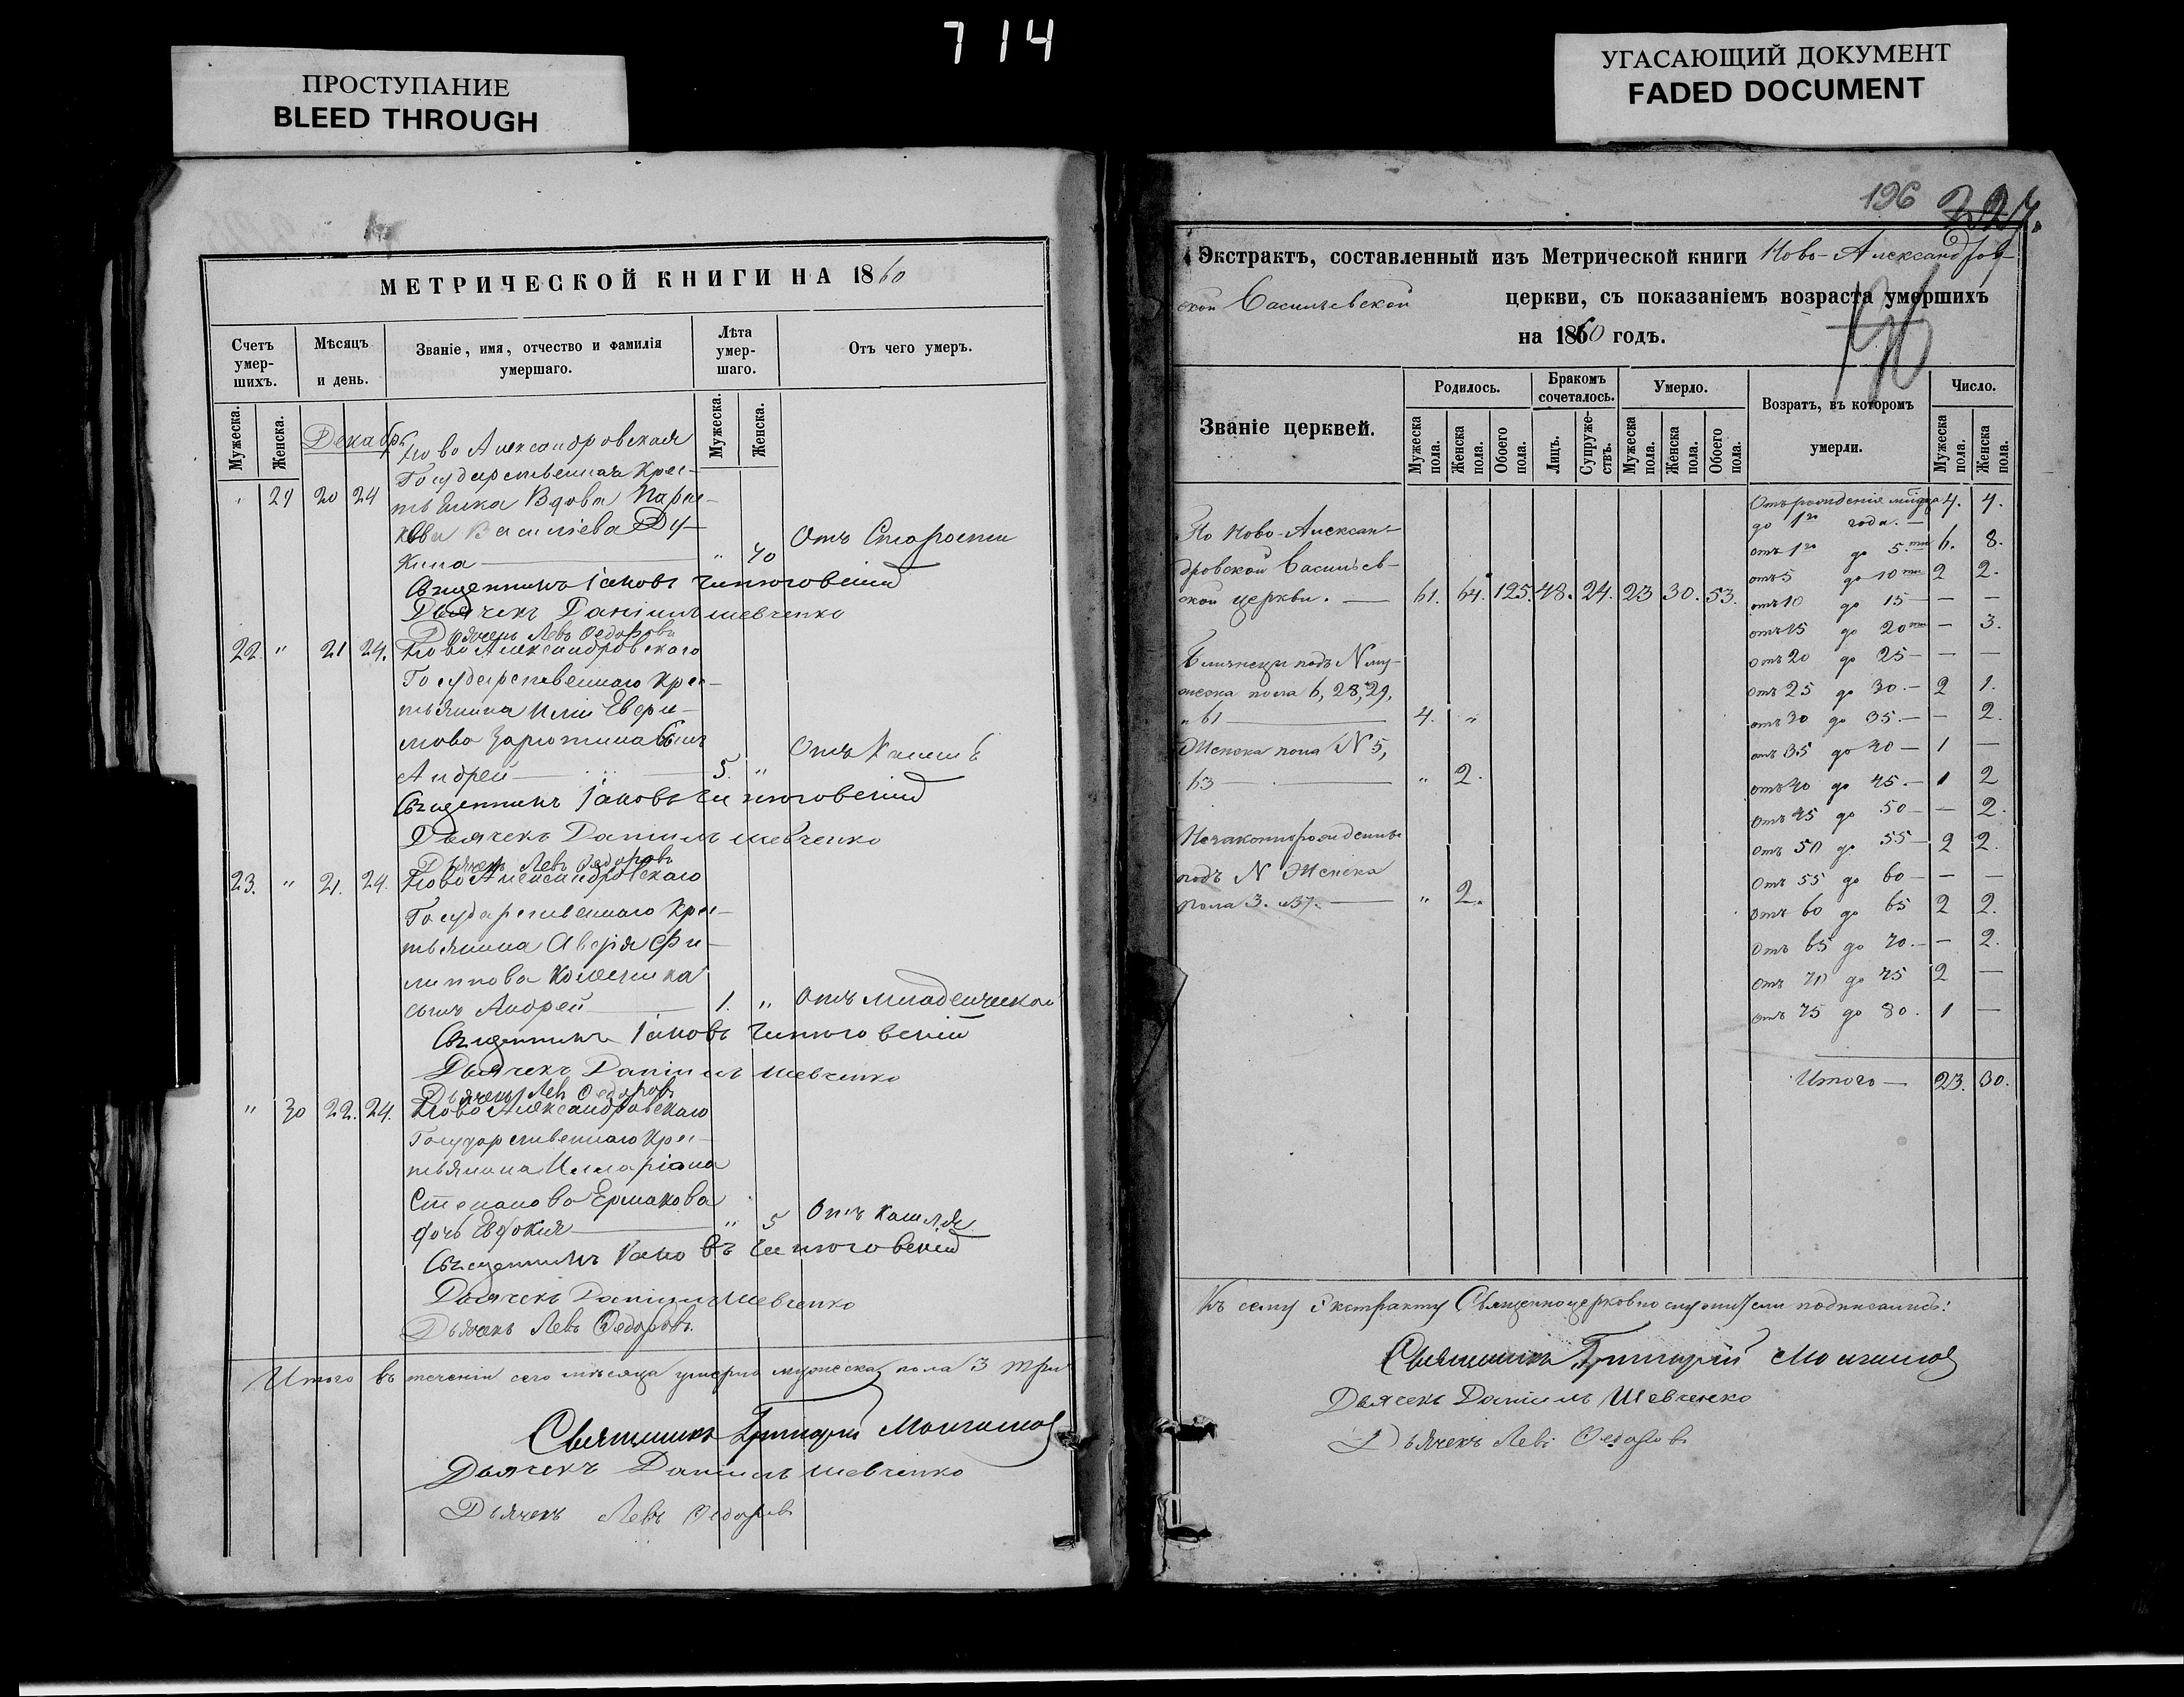 714
ПРОСТУПАНИЕ
BLEED THROUGH
УГАСАЮЩИЙ ДОКУМЕНТ
FADED DOCUMENT
МЕТРИЧЕСКОЙ КНИГИ НА 1860
Счетъ умер-шихъ.
Мѣсяцъ и день.
Званіе, имя, отчество и фамилія умершаго.
Лѣта умер-шаго.
Отъ чего умеръ.
Мужеска. Женска.
Мужеска. Женска.
Декабрь
Ново Александровская
Государственная Крес-
" 29 20 24 тьянка Вдова Парас-
кева Василіева Ду-
кина — " 70 Отъ Старости
Священникъ Іаковъ
Дьячекъ Даніилъ Шевченко
Дьячекъ Левъ Ѳедоровъ
22. " 21 24. Ново Александровскаго
Государственнаго Крес-
тьянина Иліи
сынъ
Андрей — 5. " Отъ Кашля
Священникъ Іаковъ
Дьячекъ Даніилъ Шевченко
Дьячекъ Левъ Ѳедоровъ
23. " 21. 24. Ново Александровскаго
Государственнаго Крес-
тьянина Аверія Фи-
липпова
сынъ Андрей — 1. " Отъ младенческой
Священникъ Іаковъ
Дьячекъ Даніилъ Шевченко
Дьячекъ Левъ Ѳедоровъ
" 30 22. 24. Ново Александровскаго
Государственнаго Крес-
тьянина Иларіона
Степанова Ермакова
дочь Евдокия — " 5 Отъ Кашля
Священникъ Іаковъ
Дьячекъ Даніилъ Шевченко
Дьячекъ Левъ Ѳедоровъ
Итого въ теченіи сего мѣсяца умерло мужеска пола 3 три
Священникъ Григорій
Дьячекъ Даніилъ Шевченко
Дьячекъ Левъ Ѳедоровъ
196
Экстрактъ, составленный изъ Метрической книги Ново-Александров-
ской Васильевской церкви, съ показаніемъ возраста умершихъ
на 1860 годъ.
Званіе церквей.
Родилось.
Бракомъ сочеталось.
Умерло.
Возратъ, въ которомъ умерли.
Число.
Мужеска пола. Женска пола. Обоего пола. Лицъ. Супруже-ствъ. Мужеска пола. Женска пола. Обоего пола.
Мужеска пола. Женска пола.
По Ново-Алексан-
дровской Васильев-
ской церкви. — 61. 64. 125. 48. 24. 23 30. 53.
Близнецы подъ N му-
жеска пола 6, 28, 29,
и 61 — 4. "
Женска пола N 5,
63 — " 2.
Незаконнорожденные
подъ N Женска
пола 3. и 37. — " 2.
Отъ рожденія
до 1го года. — 4. 4.
отъ 1го до 5.ти 6. 8.
отъ 5 до 10ти 2 2.
отъ 10 до 15 — — —
отъ 15 до 20ти — 3.
отъ 20 до 25 — — —
отъ 25 до 30. — 2 1.
отъ 30 до 35. — — 2.
отъ 35 до 40 — 1 —
отъ 40 до 45. — 1 2
отъ 45 до 50 — — 2.
отъ 50 до 55 — 2 2.
отъ 55 до 60 — — —
отъ 60 до 65 2 2.
отъ 65 до 70. — — 2.
отъ 70 до 75 2 —
отъ 75 до 80. 1 —
Итого — 23. 30.
Къ сему Экстракту Священноцерковнослужители подписались:
Священникъ Григорій
Дьячекъ Даніилъ Шевченко
Дьячекъ Левъ Ѳедоровъ